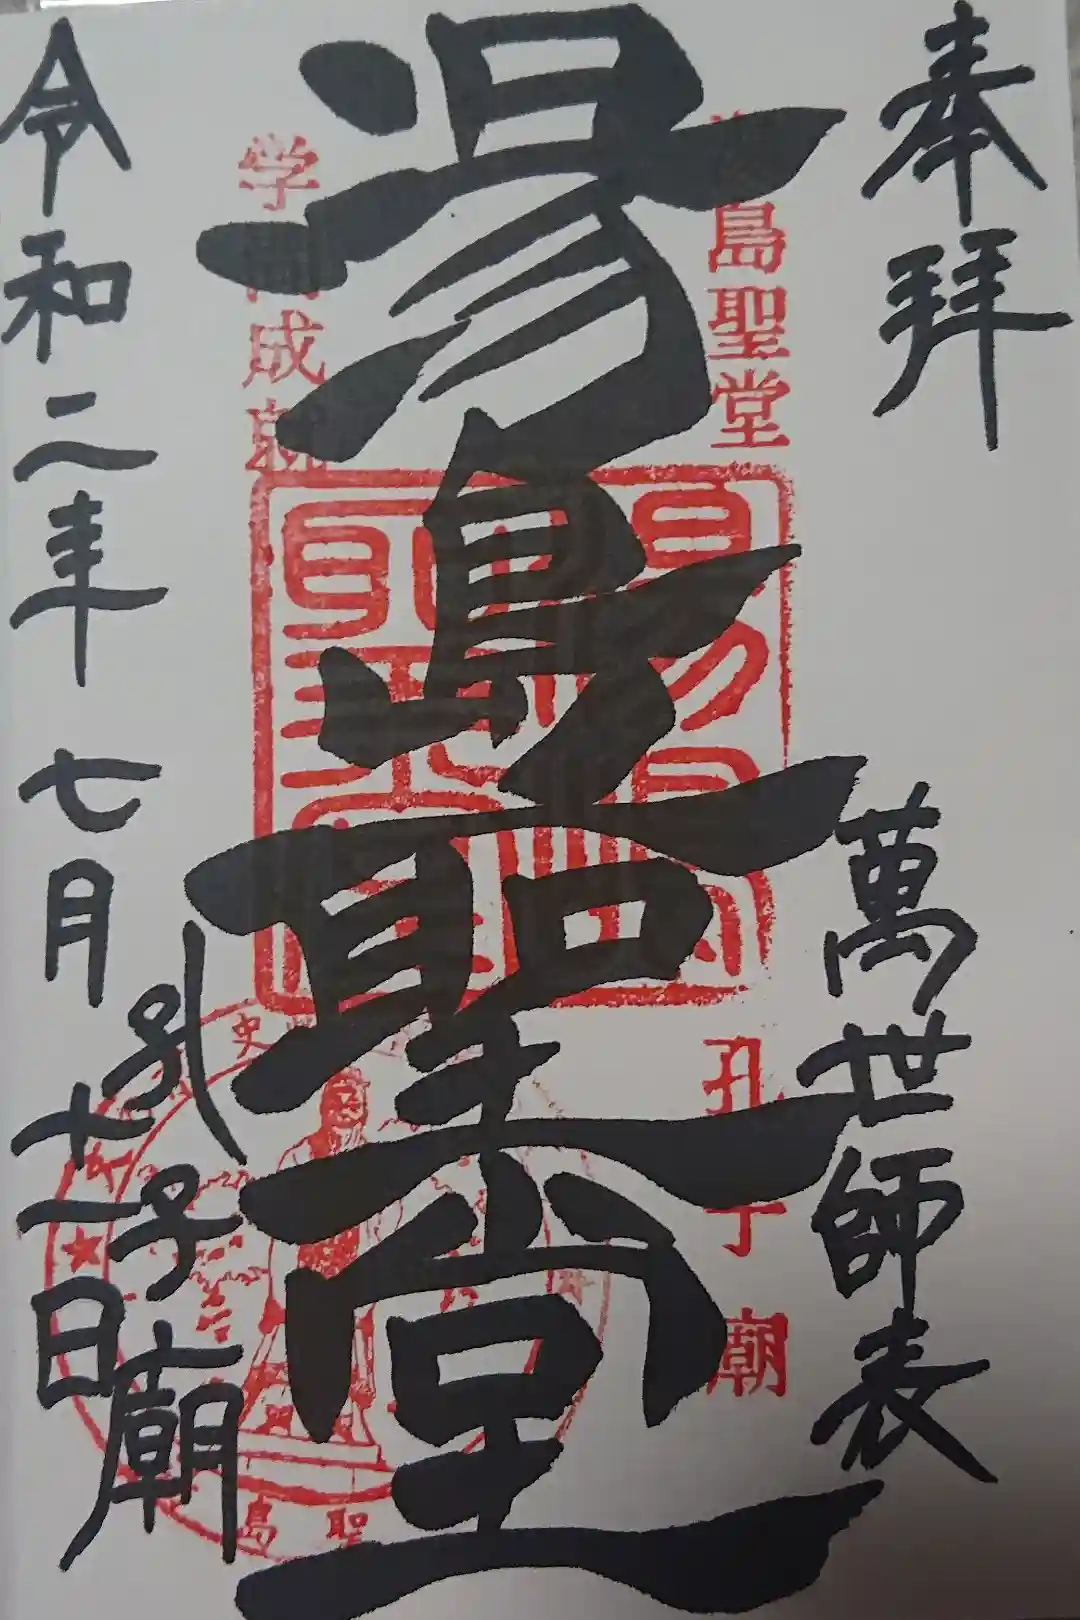 奉拝
萬世師表
島聖堂
孔子廟
湯島聖堂
学問成就
孔子廟
令和二年七月十一日
史
島聖